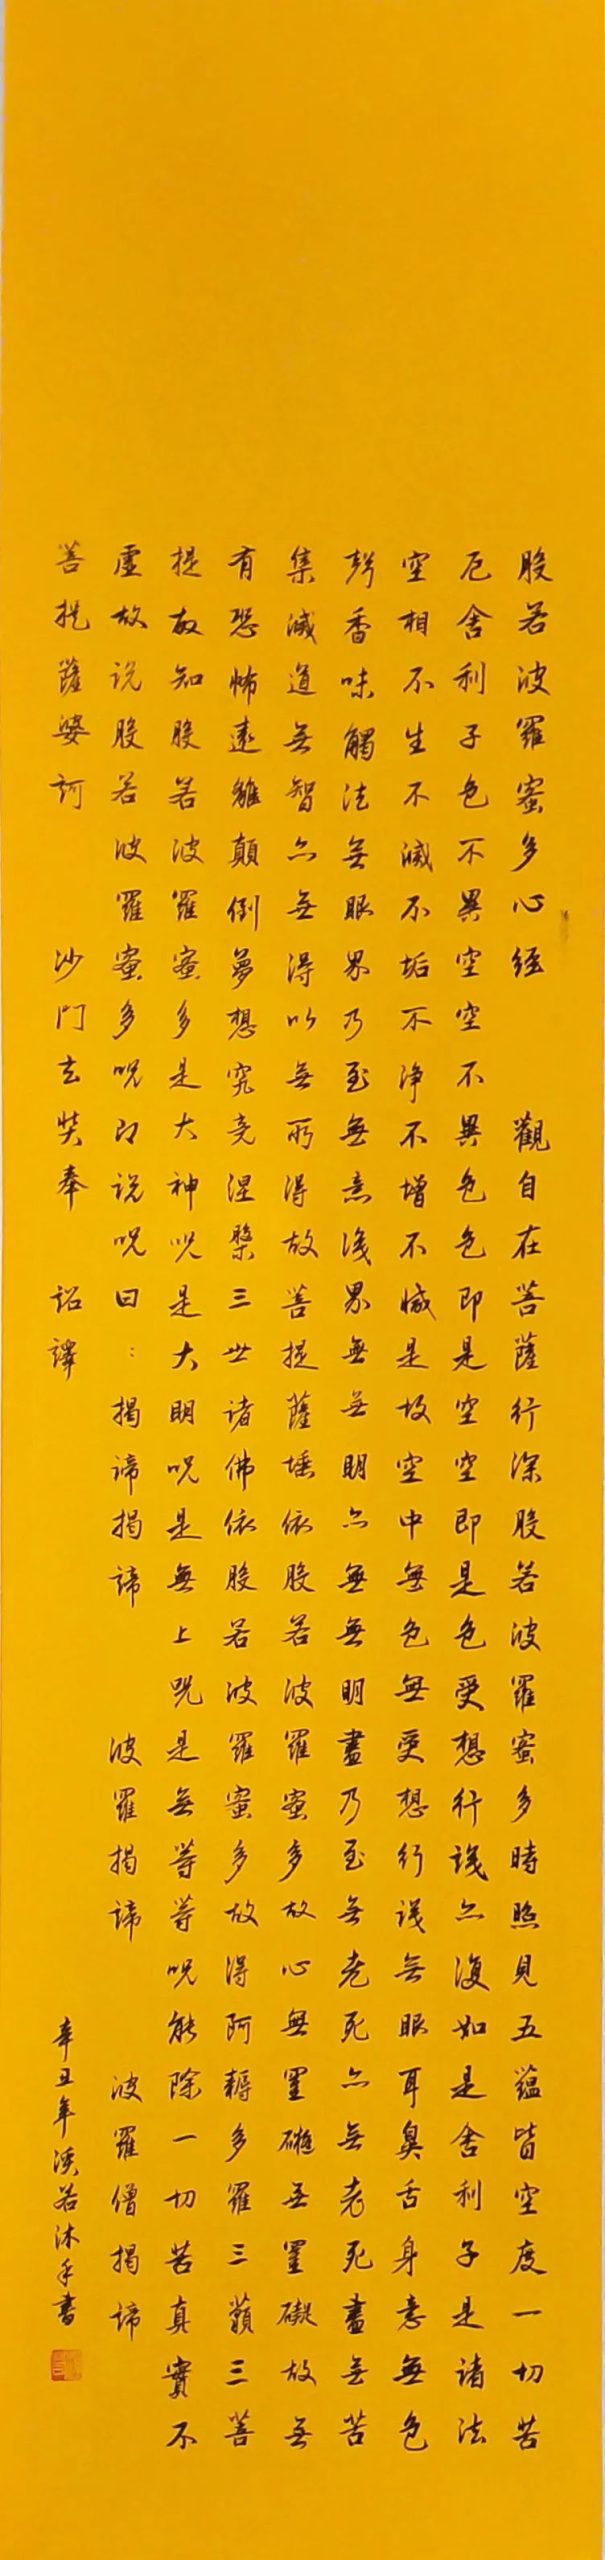 般若波羅蜜多心經 觀自在菩薩行深般若波羅蜜多時照見五蘊皆空度一切苦
厄舍利子色不異空空不異色色即是空空即是色受想行識亦復如是舍利子是諸法
空相不生不滅不垢不淨不增不減是故空中無色無受想行識無眼耳鼻舌身意無色
聲香味觸法無眼界乃至無意識界無無明亦無無明盡乃至無老死亦無老死盡無苦
集滅道無智亦無得以無所得故菩提薩埵依般若波羅蜜多故心無罣礙無罣礙故無
有恐怖遠離顛倒夢想究竟涅槃三世諸佛依般若波羅蜜多故得阿耨多羅三藐三菩
提故知般若波羅蜜多是大神咒是大明咒是無上咒是無等等咒能除一切苦真實不
虛故說般若波羅蜜多咒即說咒曰：揭諦揭諦 波羅揭諦 波羅僧揭諦
菩提薩婆訶 沙門玄奘奉 詔譯
辛丑年溪若沐手書